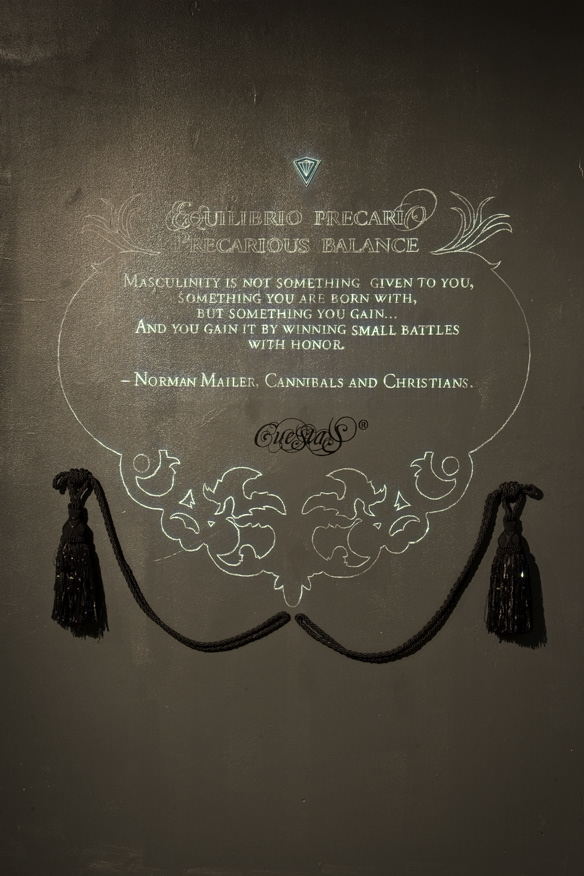 EQUILIBRIO PRECARIO
PRECARIOUS BALANCE
MASCULINITY IS NOT SOMETHING GIVEN TO YOU,
SOMETHING YOU ARE BORN WITH,
BUT SOMETHING YOU GAIN...
AND YOU GAIN IT BY WINNING SMALL BATTLES
WITH HONOR.
– NORMAN MAILER, CANNIBALS AND CHRISTIANS.
CuestaS®